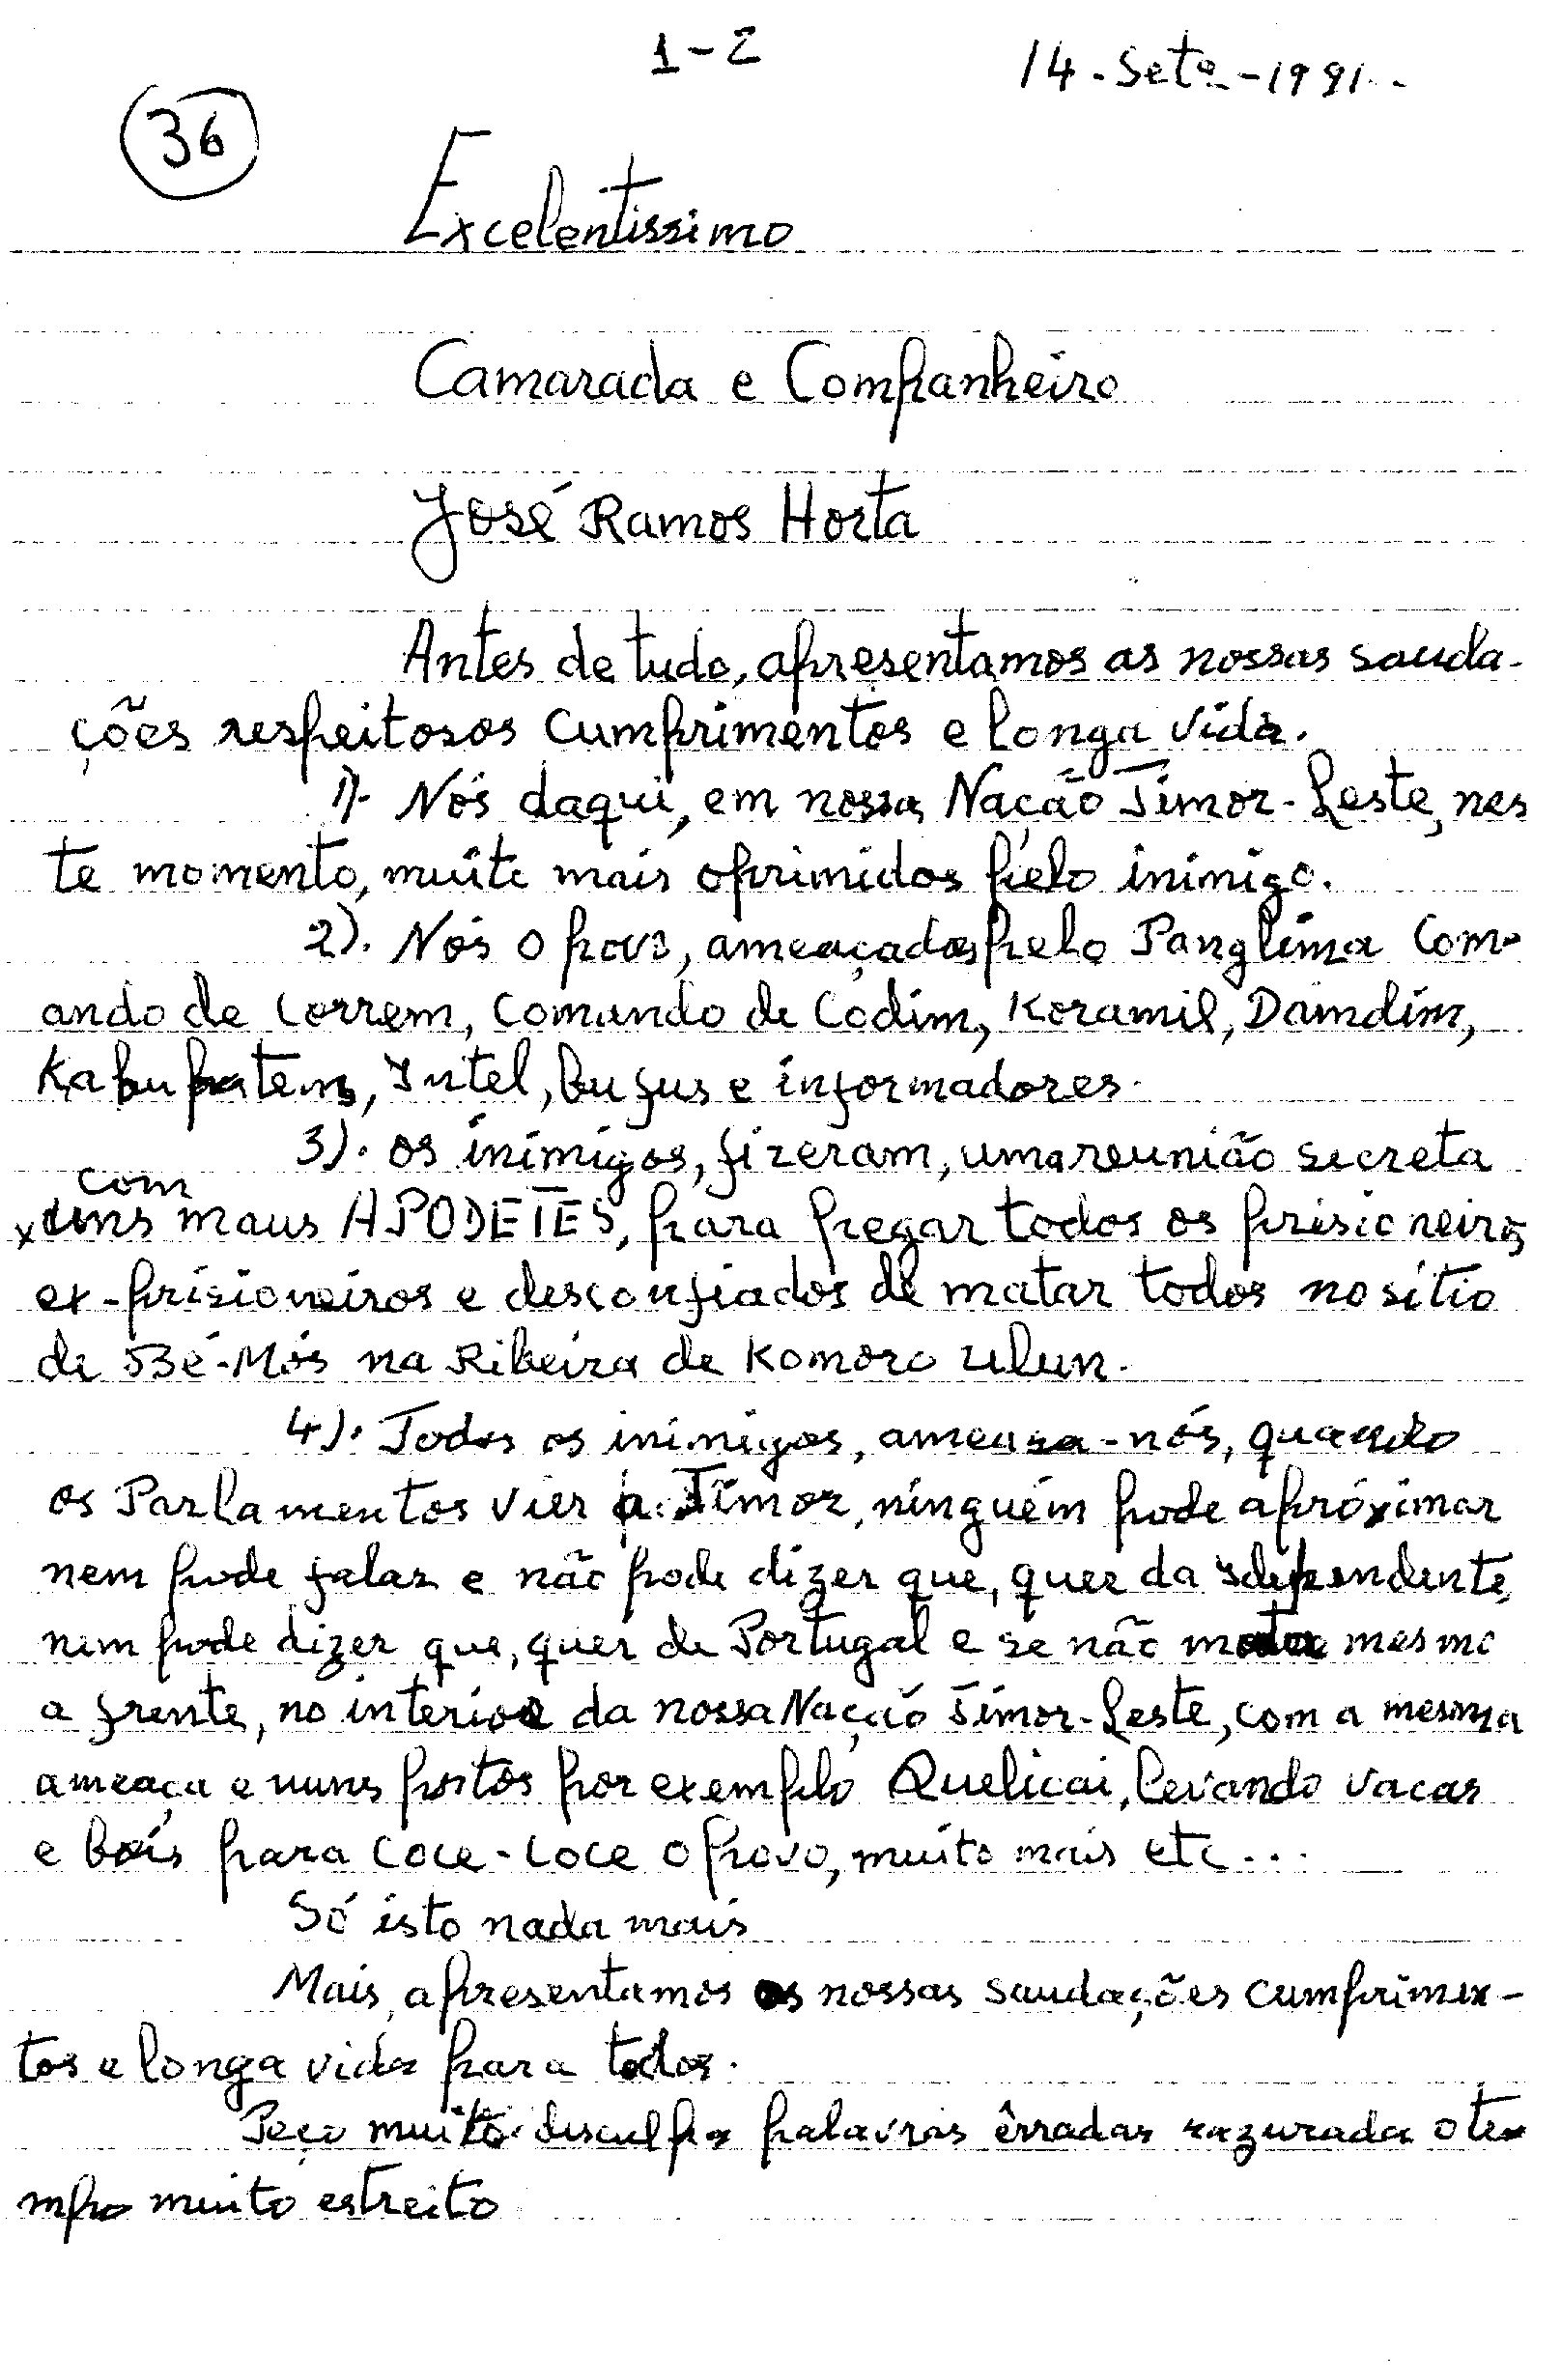 1-2
14-Setº-1991..
36
Excelentissimo
Camarada e Companheiro
José Ramos Horta
Antes de tudo, apresentamos as nossas sauda-
ções respeitosos cumprimentos e longa vida.
1)- Nós daqui, em nossa Nação Timor-Leste, nes
te momento, muito mais oprimidos pelo inimigo.
2). Nós o povo, ameaçados pelo Panglima Com-
ando de Correm, Comando de Codim, Koramil, Damdim,
Kabupatens, Intel, bufus e informadores.
3). os inimigos, fizeram, uma reunião secreta
com
x uns maus APODETES, para pregar todos os prisioneiros
ex-prisioneiros e desconfiados de matar todos no sítio
de Bé-Mós na Ribeira de Komoro ulun.
4). Todos os inimigos, ameasa-nós, quando
os Parlamentos vier a Timor, ninguém pode apróximar
nem pode falar e não pode dizer que, quer da Idependente,
nem pode dizer que, quer de Portugal e se não mata mesmo
a frente, no interior da nossa Nação Timor-Leste, com a mesma
ameaça e nuns postos por exemplo Quelicai, levando vacas
e bois para coce-coce o povo, muito mais etc...
Só isto nada mais
Mais, apresentamos as nossas saudações cumprimen-
tos e longa vida para todos.
Peço muito desculpa palavras êrradas razurada o te
mpo muito estreito